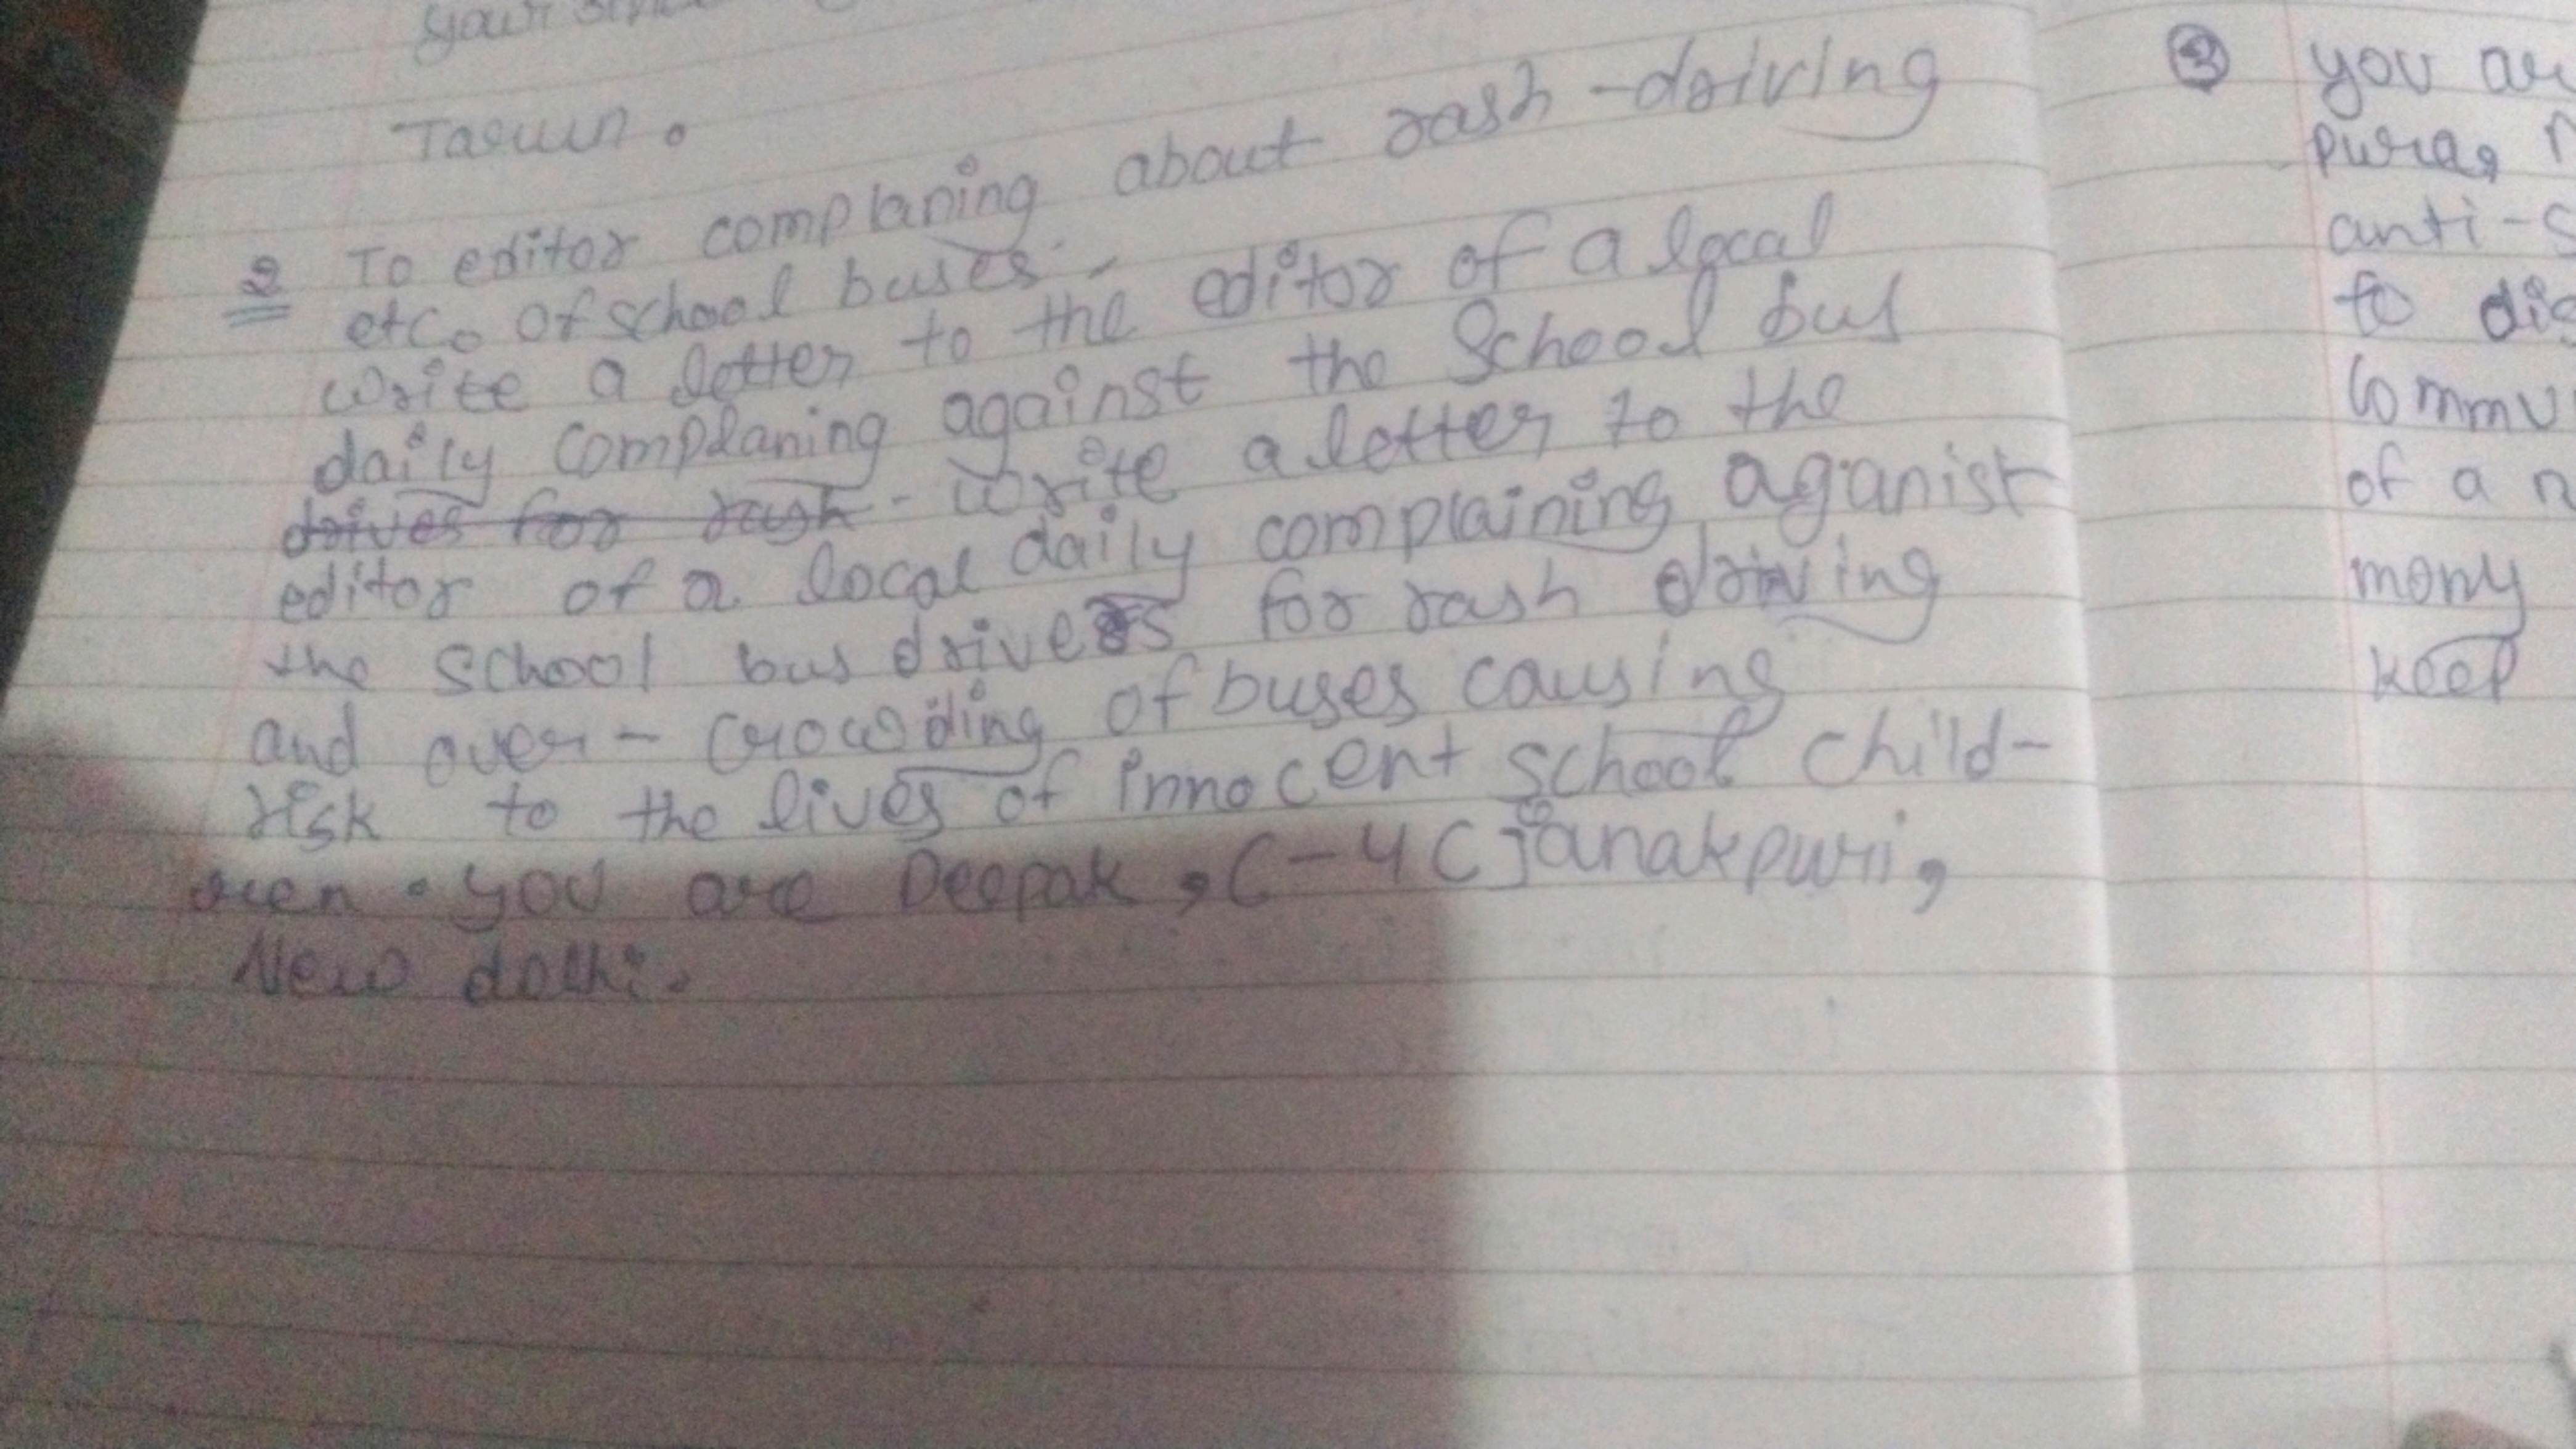 Tarun.
2 To editor complaning about rash-driving
etc. of school buses.
write a letter to the editor of a local
daily complaning against the School bus
drives for rash - write a letter to the
editor of a local daily complaining aganist
the school bus drivers for rash driving
and over-crowding of buses causing
risk to the lives of innocent school child-
ren. you are Deepak, C-4C Janakpuri,
New delhi.
3 you
pura,
anti-
to
Commu
of a
mony
keep